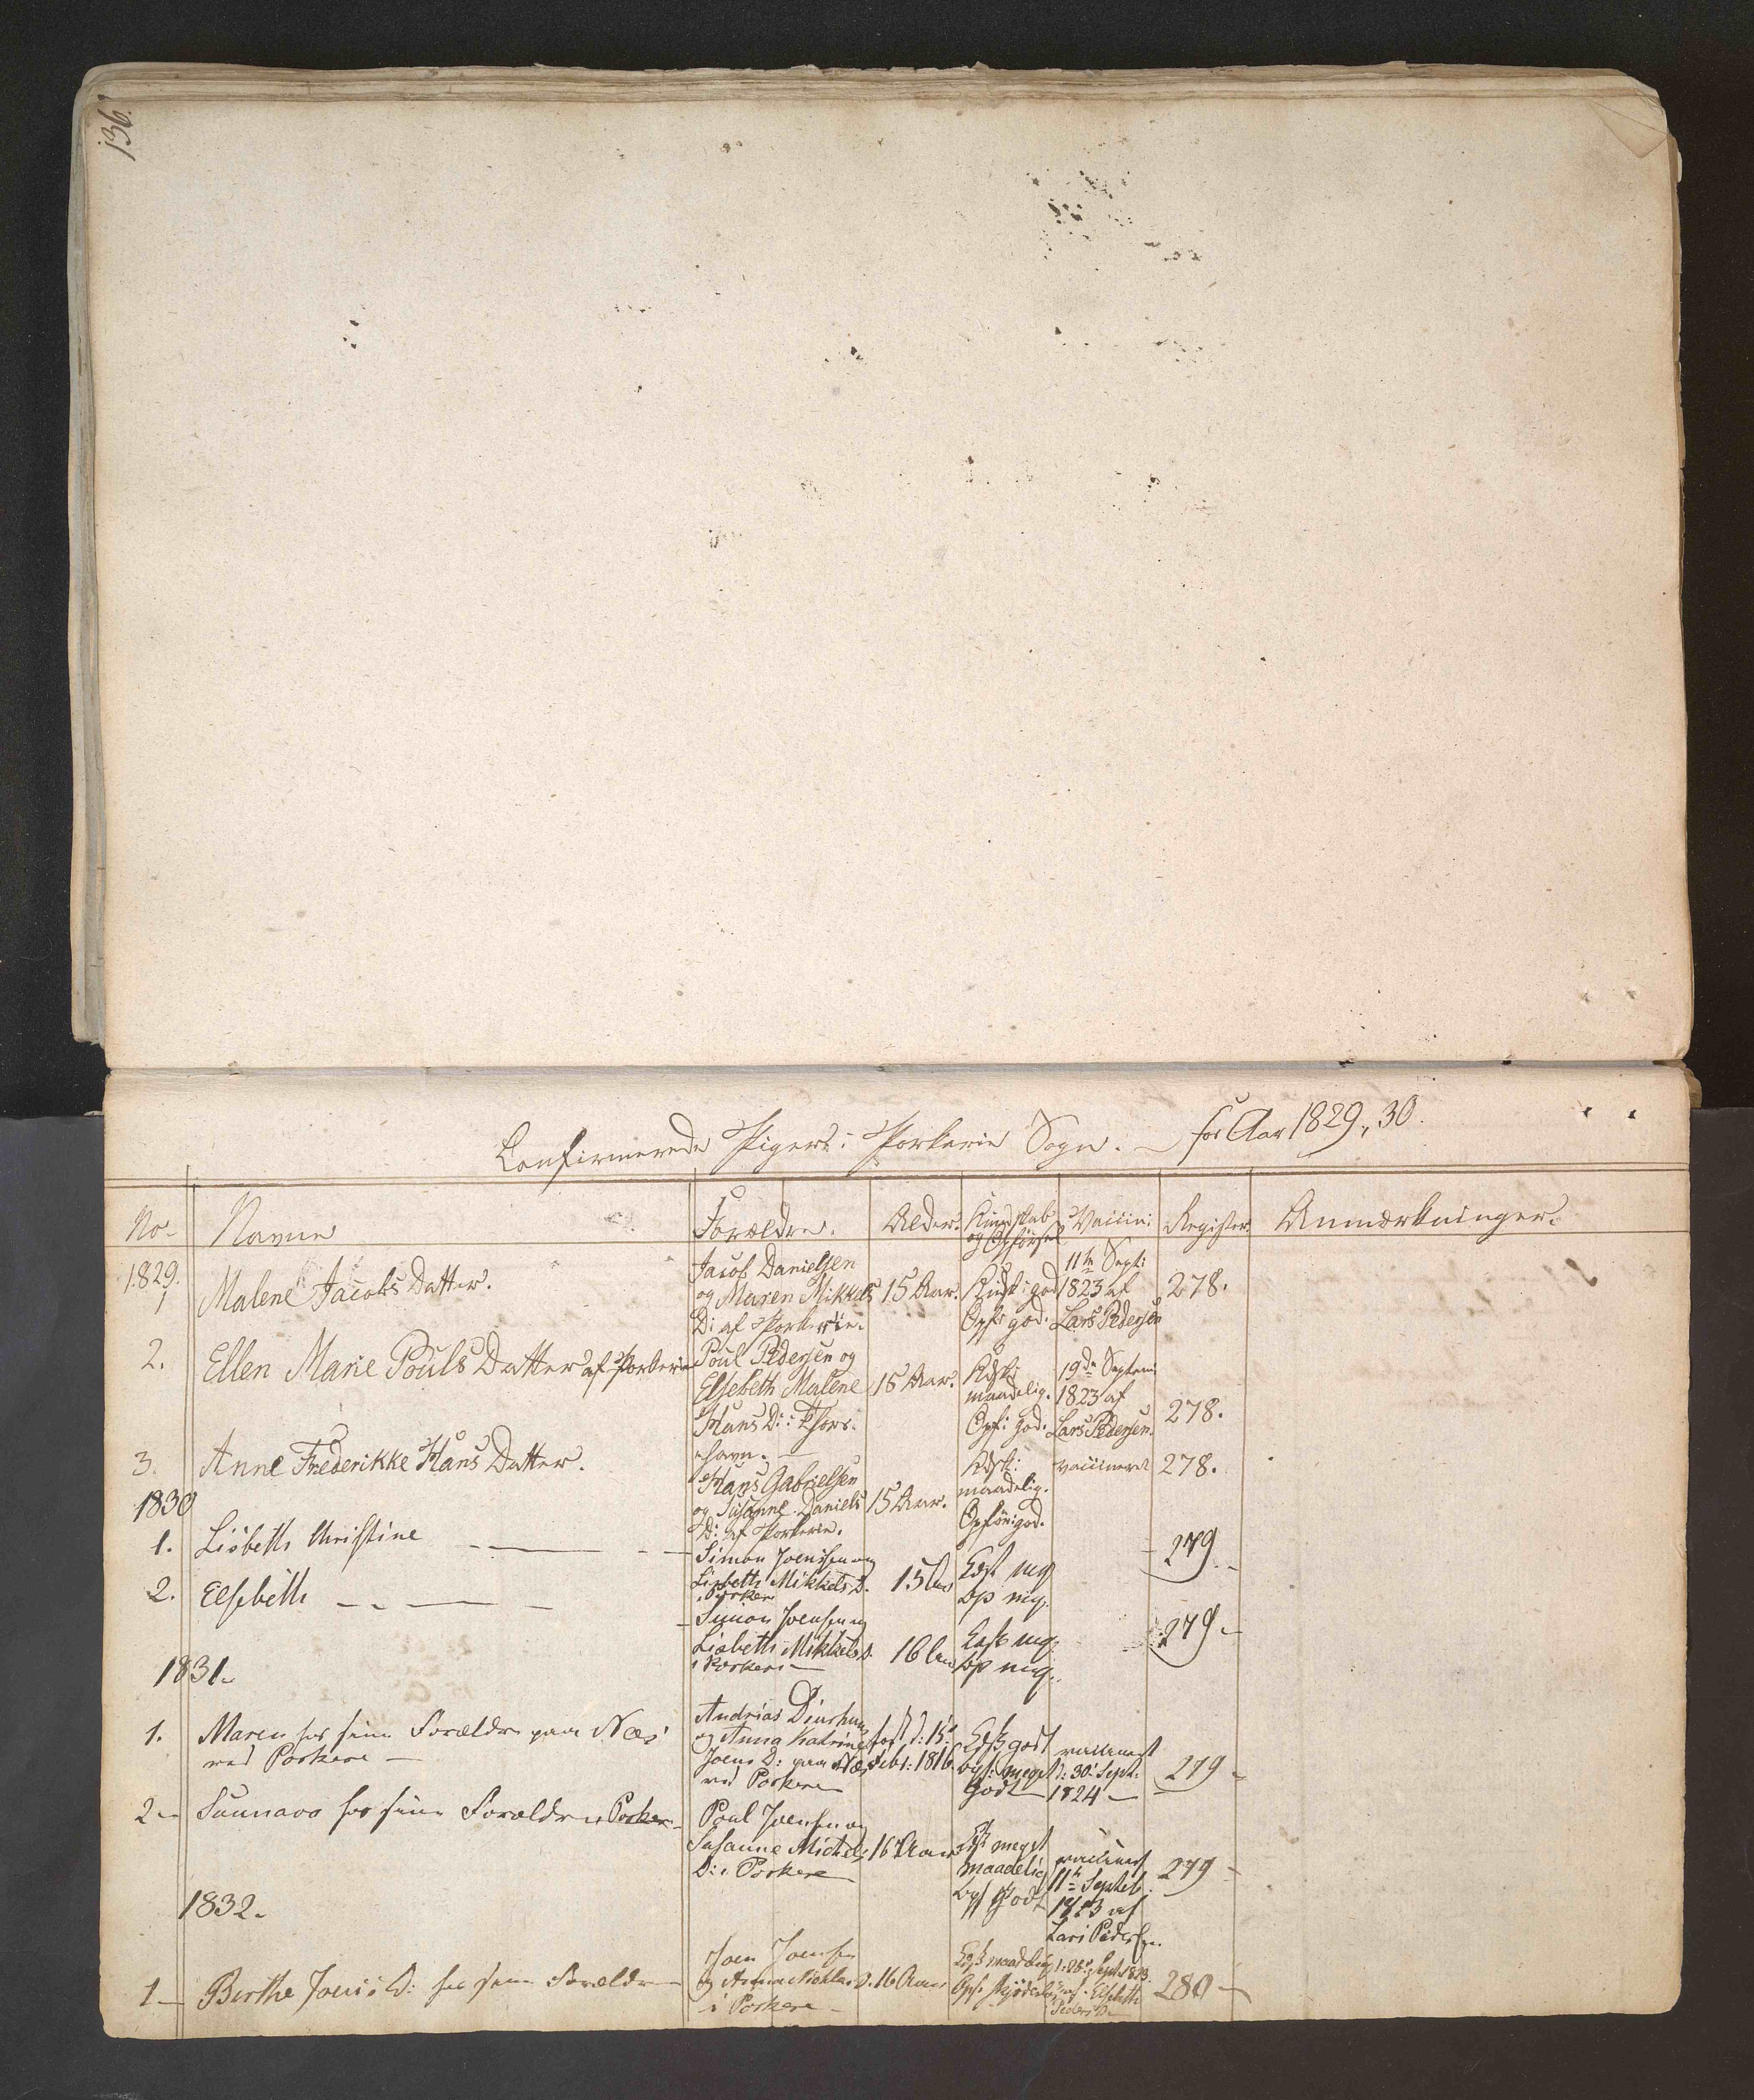 136.
Confirmerede Piger i Porkerie Sogn. – for Aar 1829, 30.
No. Navne Forældre. Alder. Kundskab og Opførsel Vaccin: Register. Anmærkninger.
1829.
1 Malene Jacobs Datter.
Jacob Danielsen
og Maren Mikkels
D: af Porkerie.
15 Aar.
Kundsk: god
Opf: god.
11te Sept:
1823 af
Lars Pedersen
278.
2. Ellen Marie Pouls Datter af Porkerie
Poul Pedersen og
Elsebeth Malene
Hans D: i Thors-
havn. –
15 Aar.
Kdsk:
maadelig.
Opf: god.
19de Septem:
1823 af
Lars Pedersen.
278.
3. Anne Frederikke Hans Datter.
Hans Gabrielsen
og Susanne Daniels
D: af Porkerie.
15 Aar.
Kdsk:
maadelig.
Opför: god.
vaccineret
278.
1830
1. Lisbeth Christine
Simon Joensen og
Lisbeth Mikkels D.
i Porkere
15
279
2. Elsebeth
Simon Joensen og
Lisbeth Mikkels D.
i Porkere
16
279
1831.
1. Maren hos sine Forældre paa Næs
ved Porkere –
Andrias
og Anna Katrine
Joens D: paa Næs
ved Porkere
Febr: 1816
godt
meget
godt
vaccineret
d: 30 Sept:
1824 –
279
2 – Sunnava hos sine Forældre i Porkere
Poul Joensen og
Susanne Michels
D: i Porkere
16 Aar
meget
maadelig
godt
vaccineret
11te Septeb.
1823 af
Lars Pedersen
279
1832.
1 – Birthe Joens D: hos sine Forældre
Joen Joensen
og Anna
i Porkere –
16 Aar
maadelig
Sept 1823
Elsebeth
280